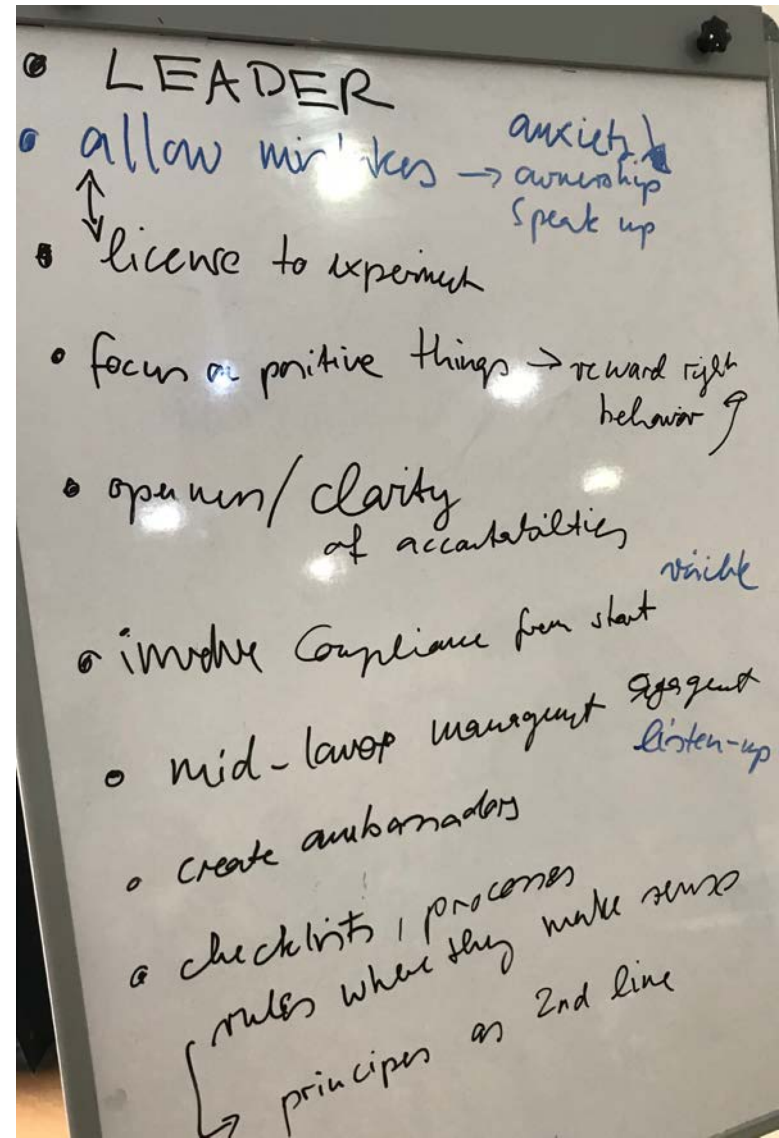 • LEADER
• allow mistakes → anxiety ↓
ownership
Speak up
↕
• license to experiment
• focus on positive things → reward right
behavior ↑
• openness / clarity
of accountabilities
• involve Compliance from start visible
• mid-lower management
listen-up
• create ambassadors
• checklists, processes
rules where they make sense
↳ principes as 2nd line